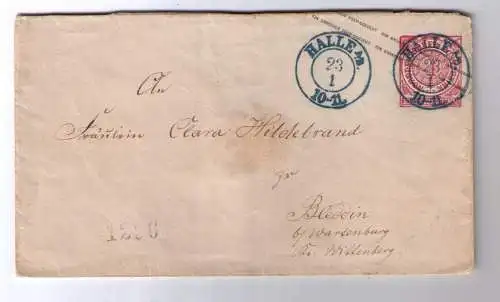 HALLE a/S.
23
1
10-11.
HALLE a/S.
23
1
10-11.
An
Fräulein Clara Hildebrand
Bleddin
b/ Wartenburg
Kr. Wittenberg